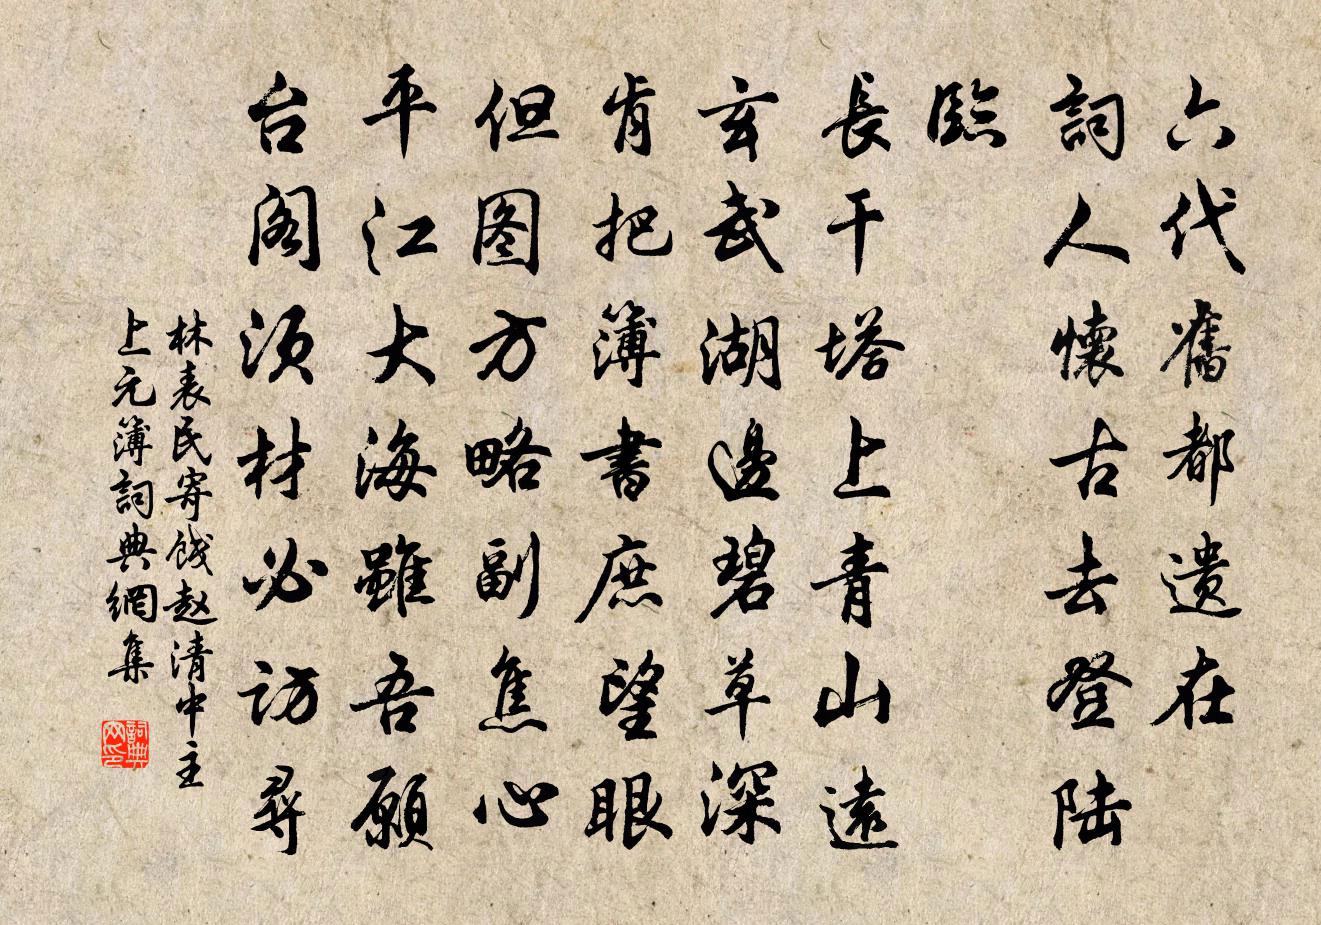 六代舊都遗在
詞人懷古去登陆
臨
長干塔上青山遠
玄武湖邊碧草深
肯把簿書庶望眼
但图方略副焦心
平江大海雖吾願
台阁须材必访尋
林表民寄饯赵清中主
上元簿詞典網集
詞典
网印